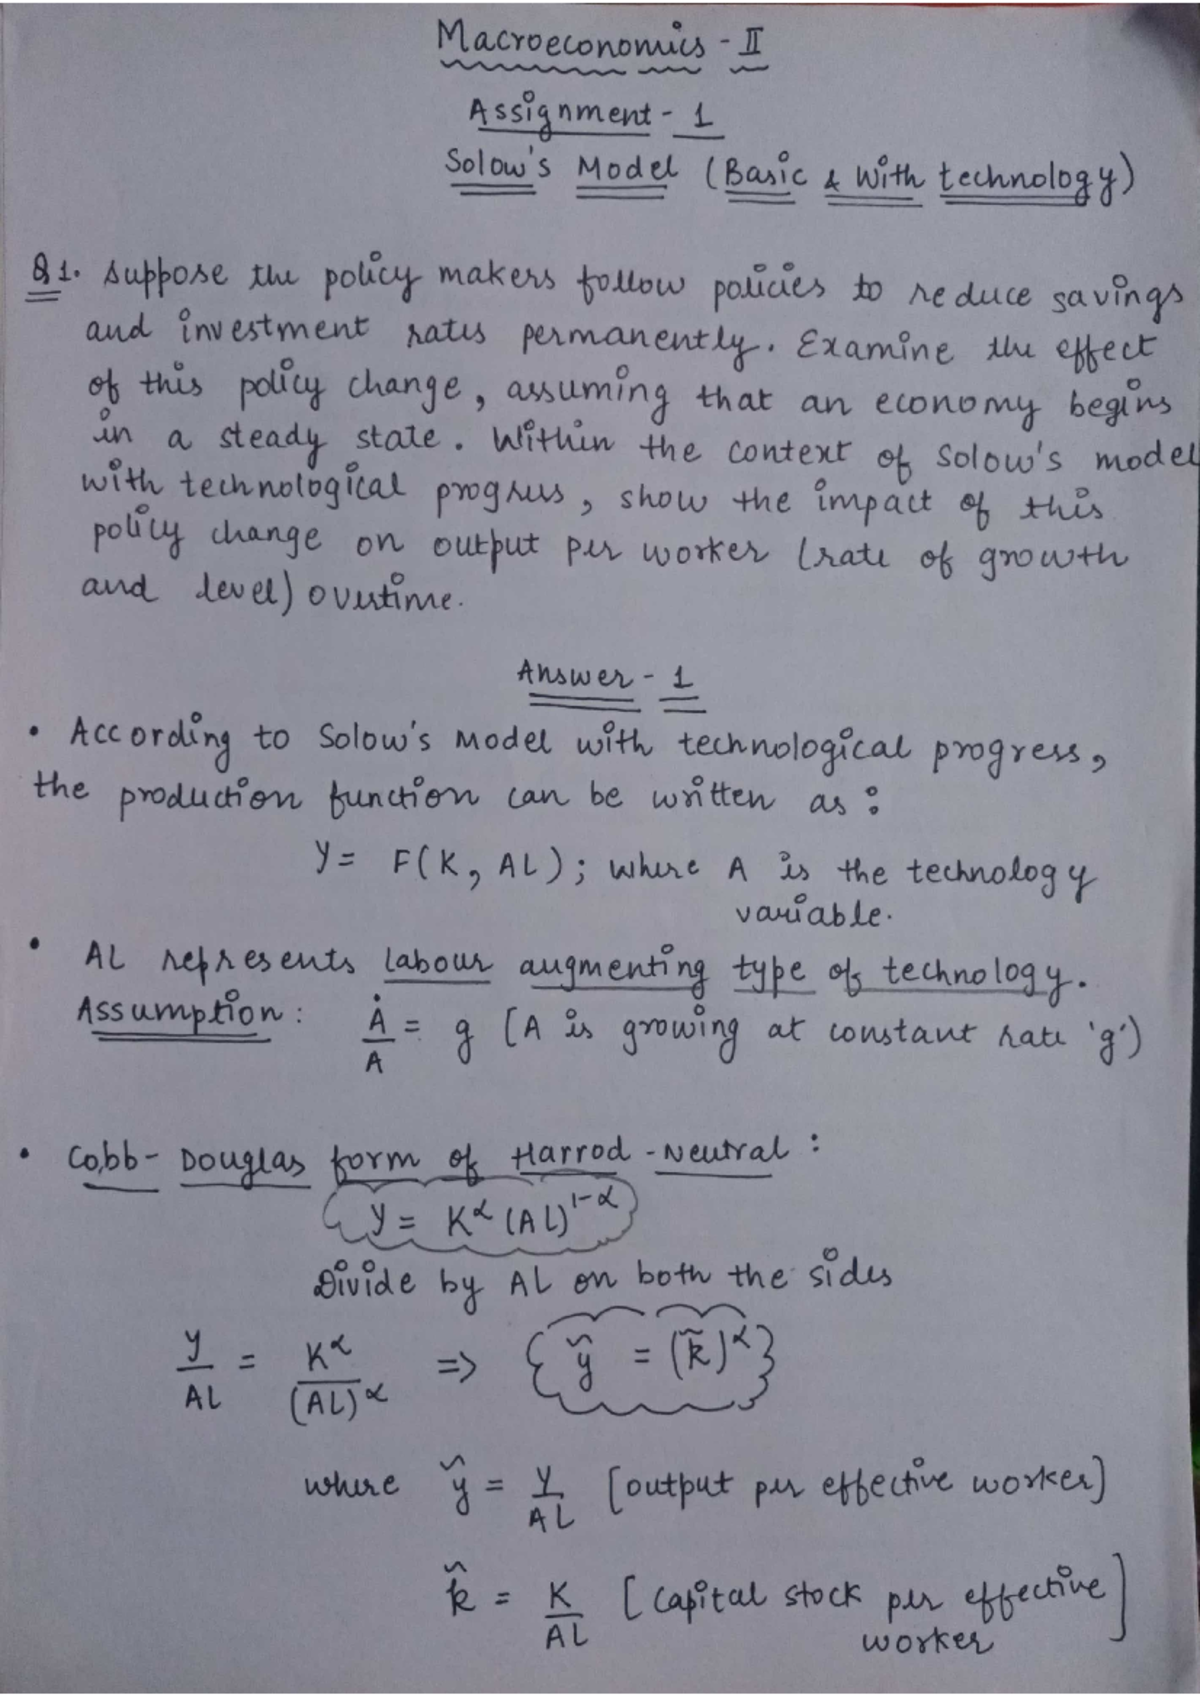 Macroeconomics - II
Assignment - 1
Solow's Model (Basic & with technology)
Q1. Suppose the policy makers follow policies to reduce savings
and investment rates permanently. Examine the effect
of this policy change, assuming that an economy begins
in a steady state. Within the context of Solow's model
with technological progress, show the impact of this
policy change on output per worker (rate of growth
and level) overtime.
Answer - 1
• According to Solow's Model with technological progress,
the production function can be written as :
Y = F(K, AL); where A is the technology
variable.
• AL represents labour augmenting type of technology.
Assumption: Ȧ/A = g [A is growing at constant rate 'g')
• Cobb-Douglas form of Harrod-Neutral :
Y = K^α (AL)^1-α
Divide by AL on both the sides
Y/AL = K^α/(AL)^α => ỹ = (k̃)^α
where ỹ = Y/AL [output per effective worker]
k̃ = K/AL [capital stock per effective
worker]